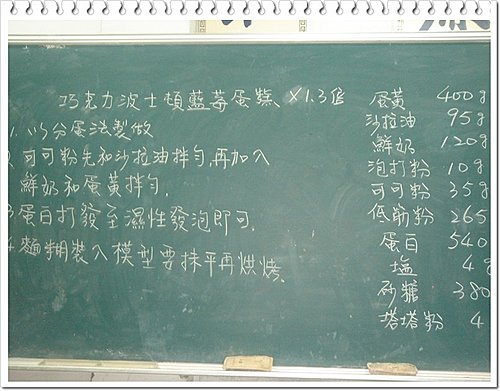 巧克力波士頓藍莓蛋糕、×1.3倍
1. 以分蛋法製做
2. 可可粉先和沙拉油拌勻,再加入
鮮奶和蛋黃拌勻.
3. 蛋白打發至濕性發泡即可.
4. 麵糊裝入模型要抹平再烘烤、
蛋黃 400g
沙拉油 95g
鮮奶 120g
泡打粉 10g
可可粉 35g
低筋粉 265
蛋白 540
塩 4g
砂糖 380
塔塔粉 4